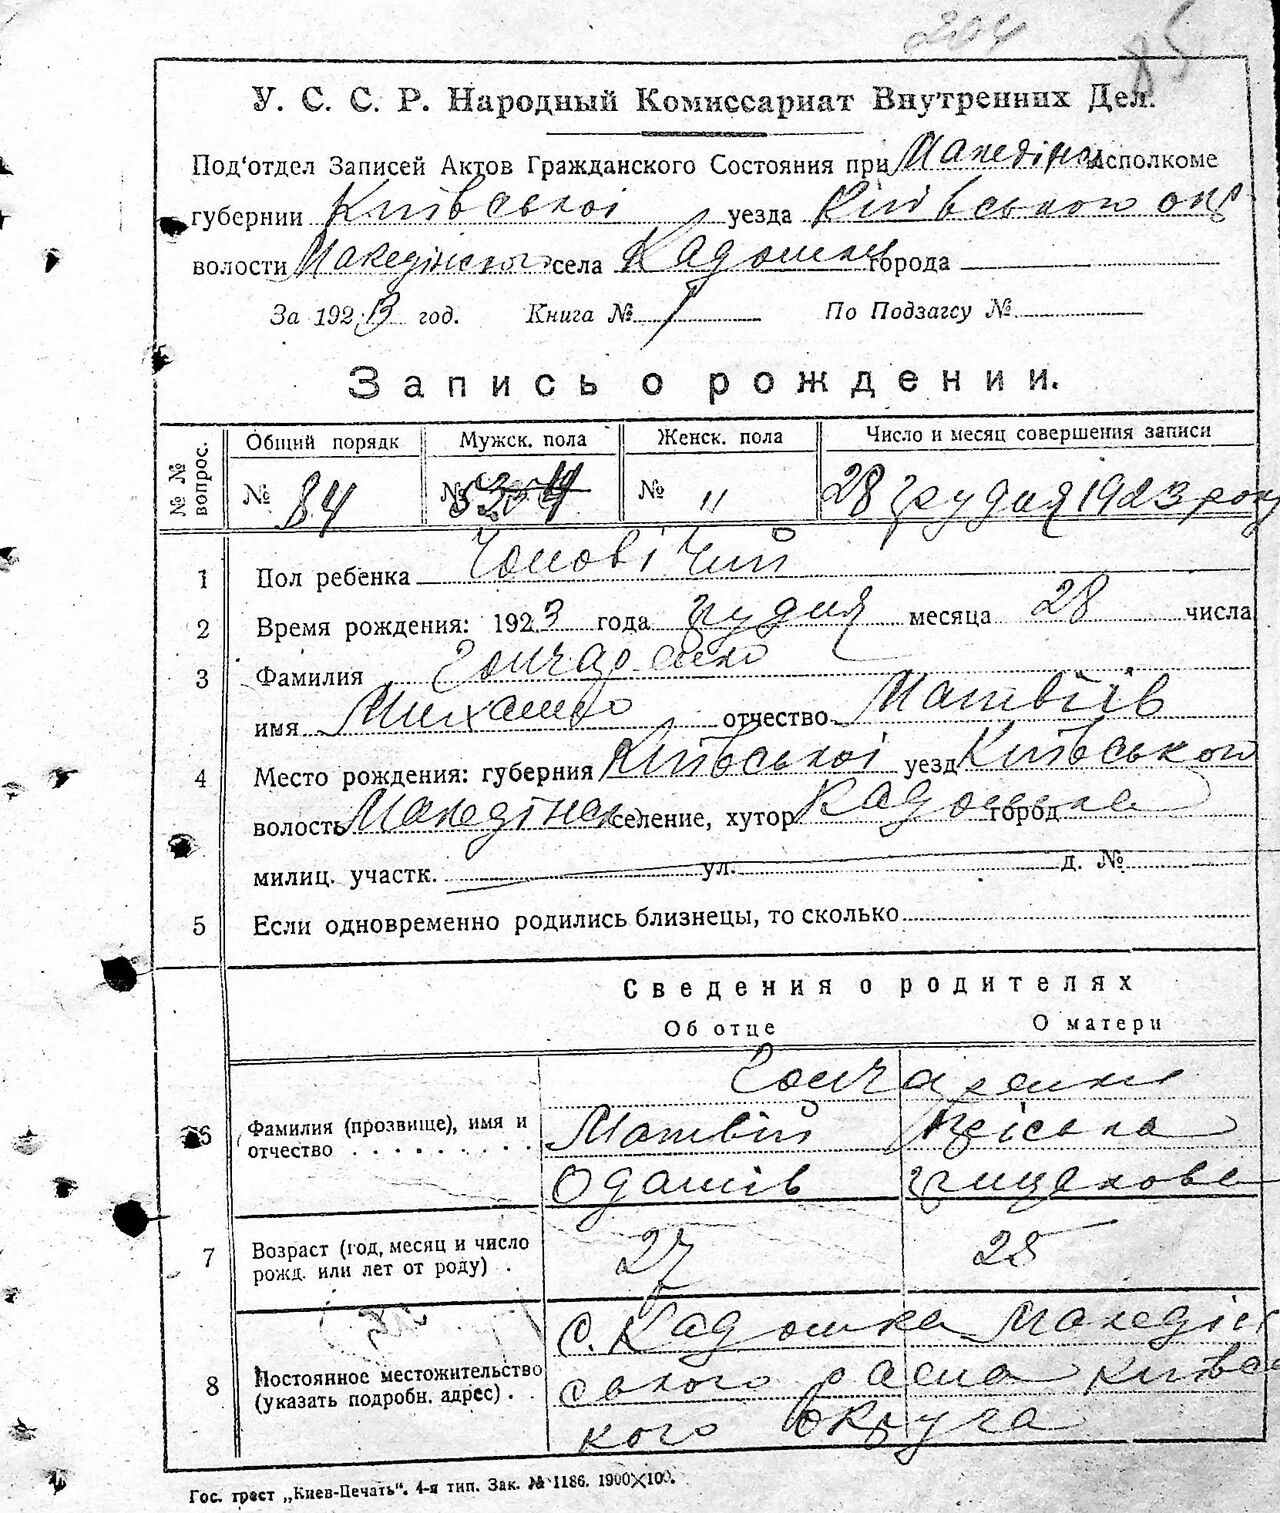 204 85
У. С. С. Р. Народный Комиссариат Внутренних Дел.
Под'отдел Записей Актов Гражданского Состояния при Македінск Исполкоме
губернии Київської уезда Київського окр
волости Македінского села Кадомка города
За 1923 год. Книга № 1 По Подзагсу №
Запись о рождении.
№ № вопрос. Общий порядк Мужск. пола Женск. пола Число и месяц совершения записи
№ 84 № № " 28 грудня 1923 року
1 Пол ребенка Чоловічий
2 Время рождения: 1923 года грудня месяца 28 числа
3 Фамилия Гончаренко
имя Михайло отчество Матвіїв
4 Место рождения: губерния Київської уезд Київського
волость Македінск селение, хутор Кадомка город
милиц. участк. ул. д. №
5 Если одновременно родились близнецы, то сколько
Сведения о родителях
Об отце О матери
Гончаренки
6 Фамилия (прозвище), имя и Матвій
отчество Грицькова
7 Возраст (год, месяц и число 27 25
рожд. или лет от роду)
с. Кадомка Македінс
8 Постоянное местожительство ського района Київсь
(указать подробн. адрес)
кого округа
Гос. трест „Киев-Печать". 4-я тип. Зак. № 1186. 1900×100.